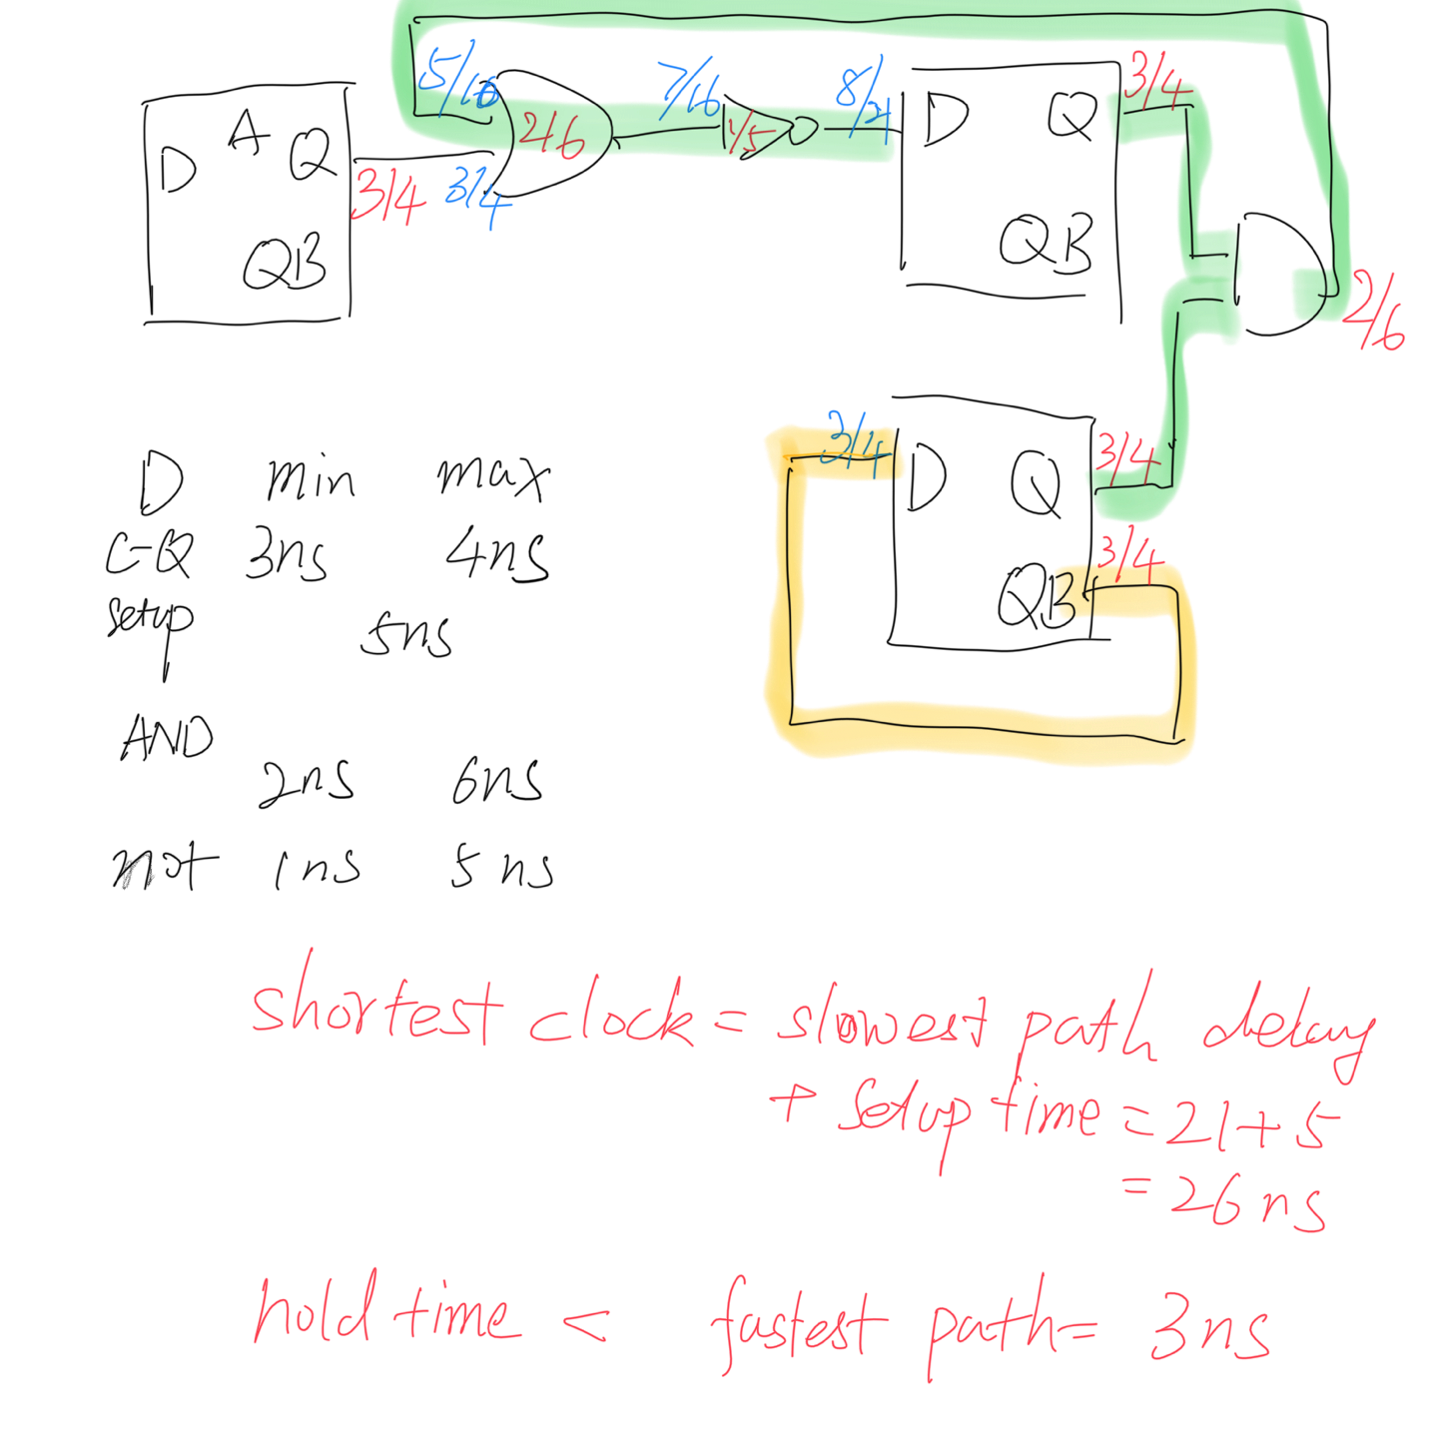 5/10
7/16
8/21
3/4
D A Q
QB
3/4
3/4
2/6
1/5
D Q
QB
2/6
3/4
D Q
3/4
QB
3/4
D min max
C-Q 3ns 4ns
setup 5ns
AND
2ns 6ns
not 1ns 5ns
shortest clock = slowest path delay
+ setup time = 21+5
= 26ns
hold time < fastest path = 3ns